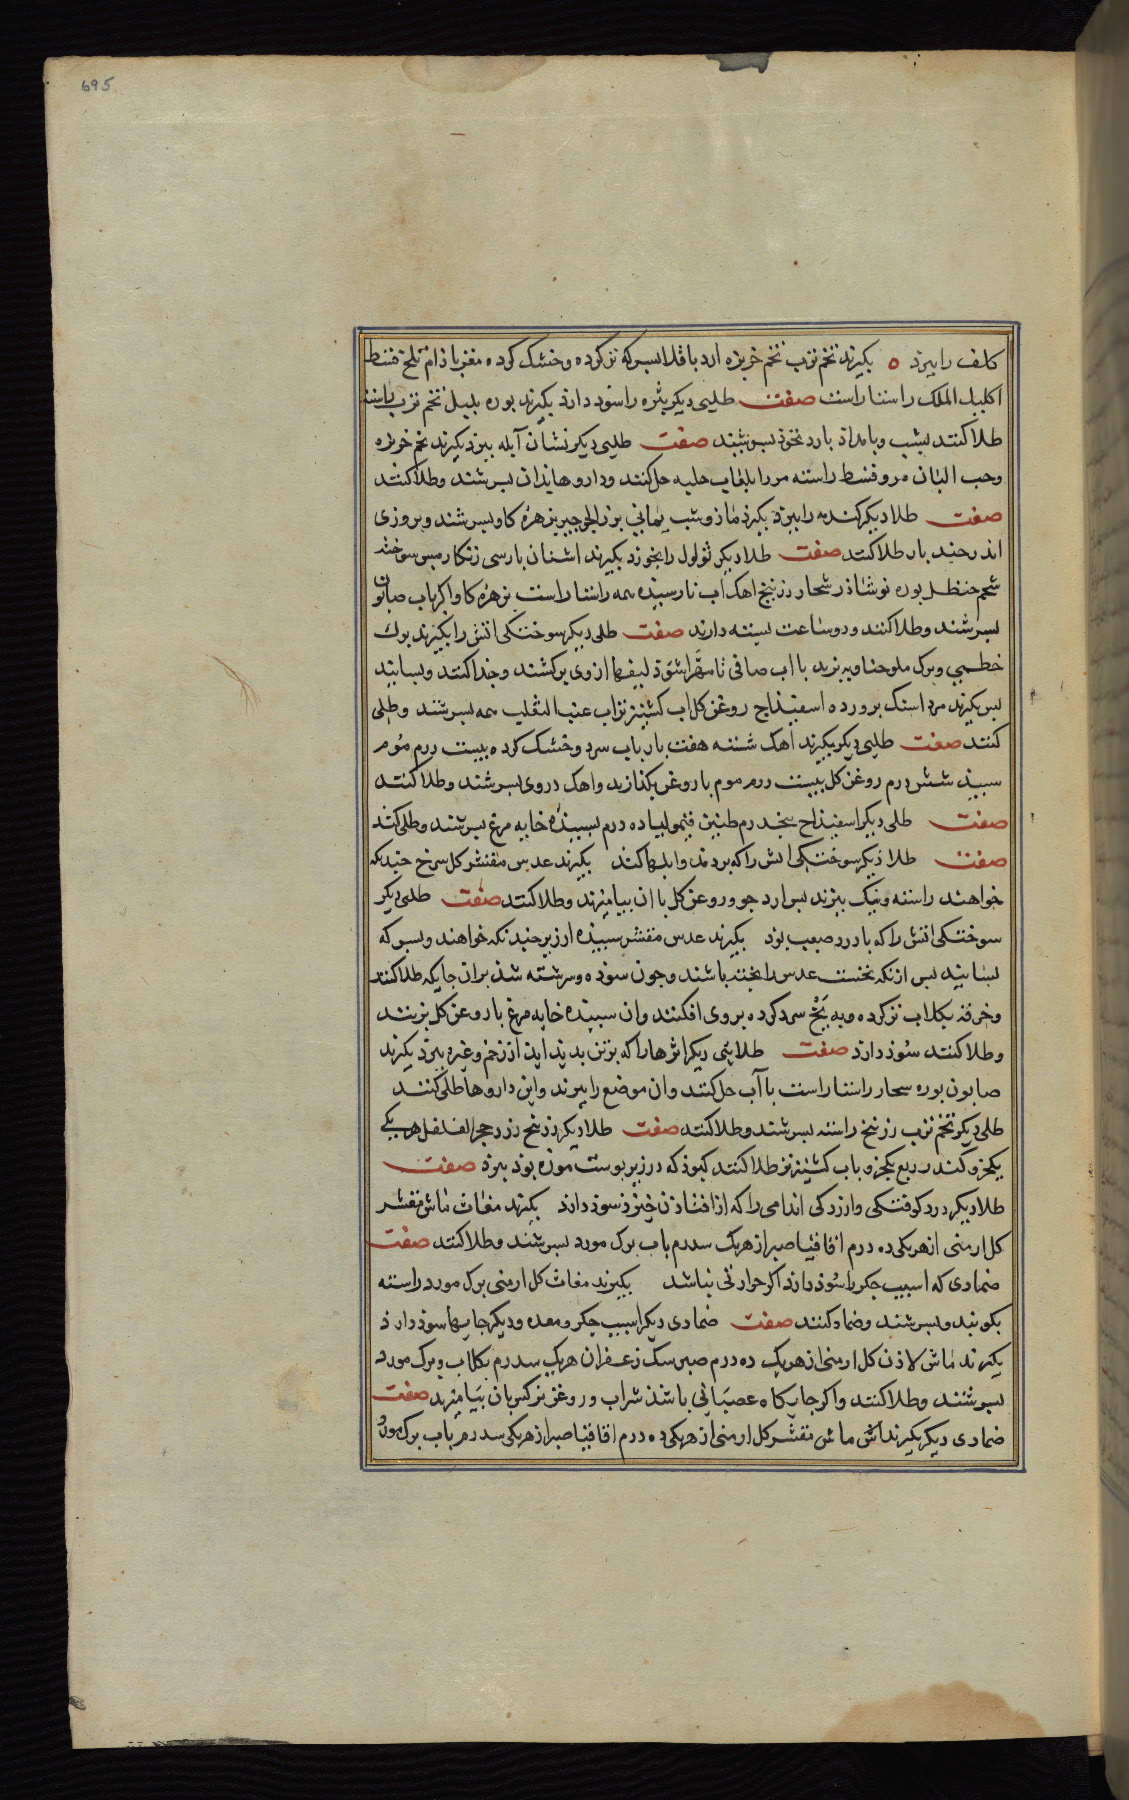 695
کلف را ببرد ٥ بکیرند تخم ترب تخم خربزه ارد باقلا بسرکه تر کرده و خشک کرده مغز باذام تلخ قسط
اکلیل الملک راستا راست صفت طلیی دیکر بثره را سود دارد بکیرند بوره بلبل تخم ترب راسته
طلا کنند بشب و بامداذ بارد نخوذ بسوشند صفت طلیی دیکر نشان آبله ببرد بکیرند تخم خربزه
وحب البان مر و قسط راسته مر را بلعاب حلبه حل کنند و داروها بذان بسرشند و طلا کنند
صفت طلا دیکر کندمه را ببرد بکیرند مازو شب یمانی بزر الجرجیر بزهرهٔ کاو بسرشند و بروزی
اندر چند بار طلا کنند صفت طلا دیکر ثولول را بخورد بکیرند اشنان بارسی زنکار مس سوخته
شحم حنظل بوره نوشاذر شحار زرنیخ اهک اب نارسیده همه راستا راست بزهره کاو اکر باب صابون
بسرشند و طلا کنند و دو ساعت بسته دارند صفت طلی دیکر سوختکی اتش را بکیرند برک
خطمی و برک ملوخیا و به بزند با اب صافی تا مهرا شود لیفها از وی برکشند و جذا کنند و بسایند
بس بکیرند مرداسنک برورده اسفیذاج روغن کل اب کشنیز تر اب عنب الثعلب همه بسرشند و طلی
کنند صفت طلیی دیکر بکیرند اهک شسته هفت بار باب سرد و خشک کرده بیست درم موم
سبید شش درم روغن کل بیست درم موم با روغن بکذازند و اهک در وی بسرشند و طلا کنند
صفت طلی دیکر اسفیذاج بنج درم طین قیمولیا ده درم بسبیذهٔ خایه مرغ بسرشند و طلی کنند
صفت طلا دیکر سوختکی اتش را که بردمذ و ابلها کند بکیرند عدس مقشر کل سرخ چندنکه
خواهند راسته و نیک ببزند بس ارد جو و روغن کل با ان بیامیزند و طلا کنند صفت طلی دیکر
سوختکی اتش را که با درد صعب بوذ بکیرند عدس مقشر سبیذه ارزیز چندنکه خواهند و بسرکه
بسایند بس ازنکه نخست عدس را بخته باشند و جون سوذه و سرشته شذ بران جایکه طلا کنند
و خرقه بکلاب تر کرده و به یخ سرد کرده بروی افکنند و ان سبیذه خایه مرغ با روغن کل بزنند
و طلا کنند سوذ دارد صفت طلایی دیکر اثرها را که بر تن بدید اید از زخم و غیره ببرد بکیرند
صابون بوره شحار راستا راست با آب حل کنند و ان موضع را ببرند و این داروها طلی کنند
طلی دیکر تخم ترب زرنیخ راسته بسرشند و طلا کنند صفت طلا دیکر زرنیخ زرد حجر الفلفل هر یکی
یکجزو کندر ربع یکجزو باب کشنیز تر طلا کنند کبوذ که در زیر بوست موزه بوذ ببرد صفت
طلا دیکر درد کوفتکی و ازردکی اندامی را که از افتاذن خیزذ سوذ دارد بکیرند مغاث ماش مقشر
کل ارمنی از هریکی ده درم اقاقیا صبر از هریک سدرم باب برک مورد بسرشند و طلا کنند صفت
ضمادی که اسیب جکر را سوذ دارد اکر حرارتی نباشد بکیرند مغاث کل ارمنی برک مورد راسته
بکوبند و بسرشند و ضماد کنند صفت ضمادی دیکر اسیب جکر و معده و دیکر جایها سوذ دارذ
بکیرند ماش لاذن کل ارمنی از هریک ده درم صبر سک زعفران هریک سدرم بکلاب و برک مورد
بسرشند و طلا کنند و اکر جایکاه عصبانی باشذ شراب و روغن نرکس بان بیامیزند صفت
ضمادی دیکر بکیرند ماش مقشر کل ارمنی از هریکی ده درم اقاقیا صبر از هریکی سدرم باب برک مورد